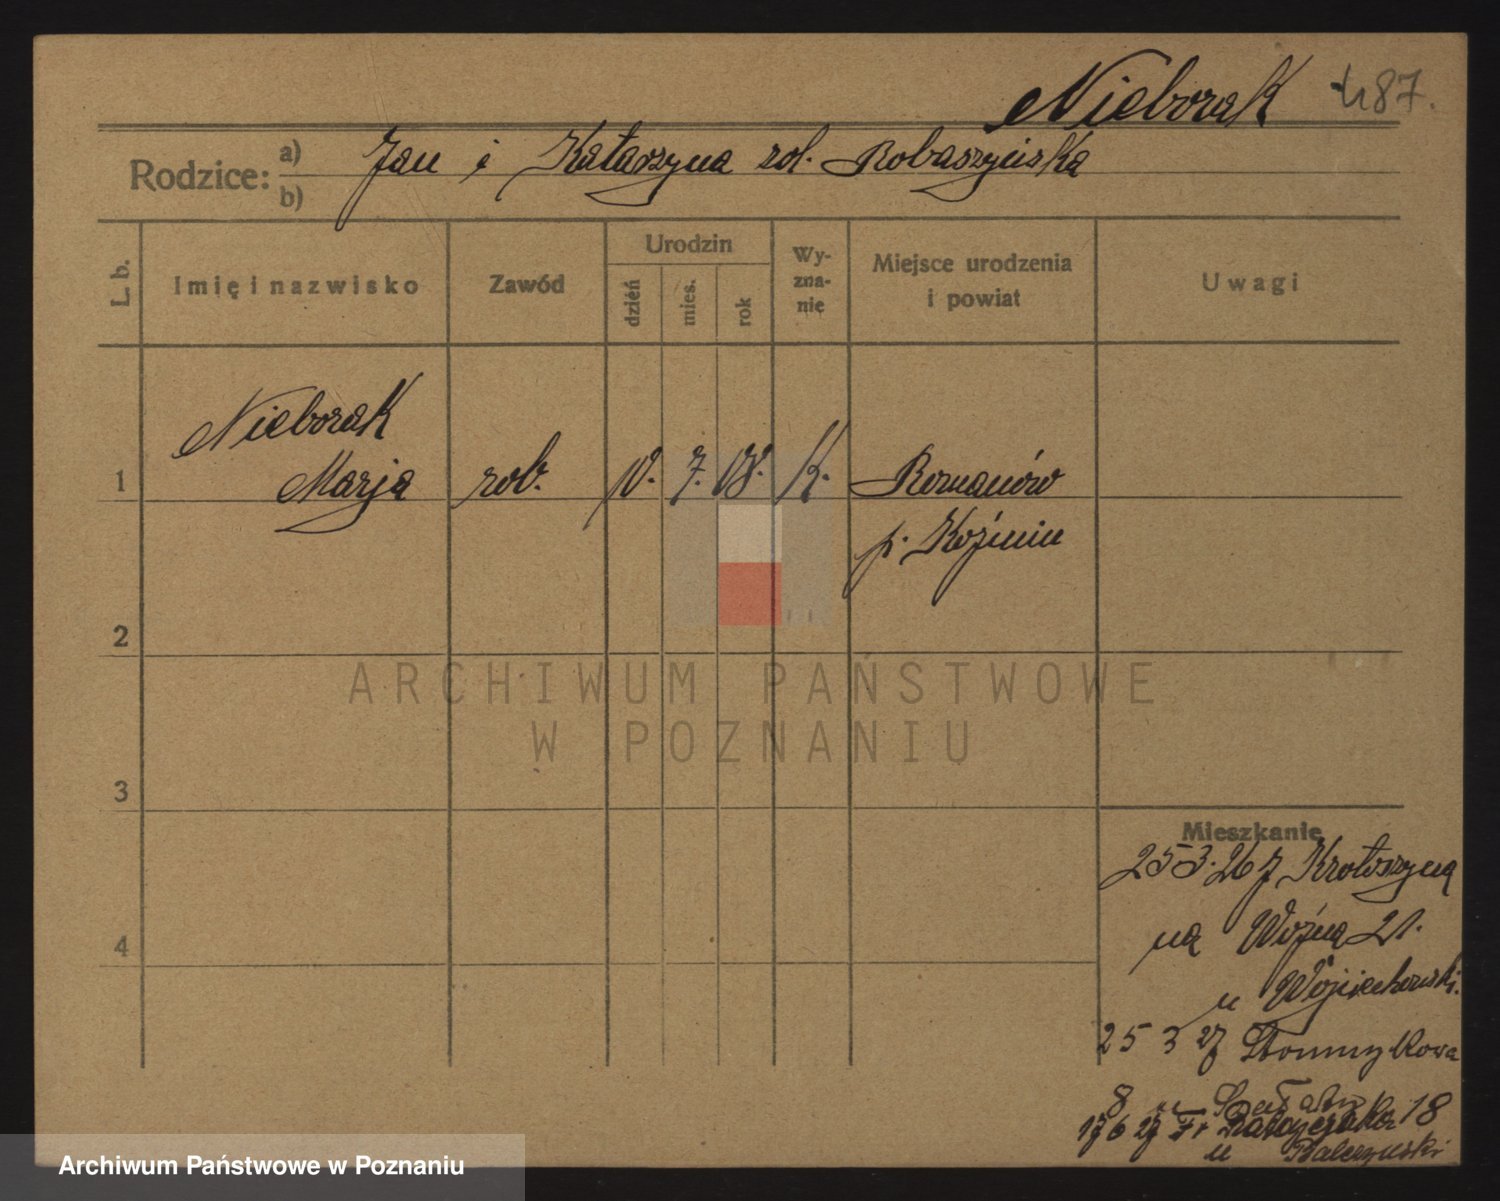 Nieborak 487.
Rodzice: a) b)
Jan i Katarzyna Robaszyńska
L. b.
Imię i nazwisko
Zawód
Urodzin
dzień
mies.
rok
Wy-
zna-
nie
Miejsce urodzenia
i powiat
Uwagi
Nieborak
1 Marja rob. 7. K. Romanów
p. Koźmin
2
ARCHIWUM PAŃSTWOWE
W POZNANIU
3
Mieszkanie
25 3. 26 z Krotoszyna
na Woźną 21.
4
u Wojciechowski.
25 3 27
8 u
17 6 27 Fr Ratajczaka 18
u
Archiwum Państwowe w Poznaniu